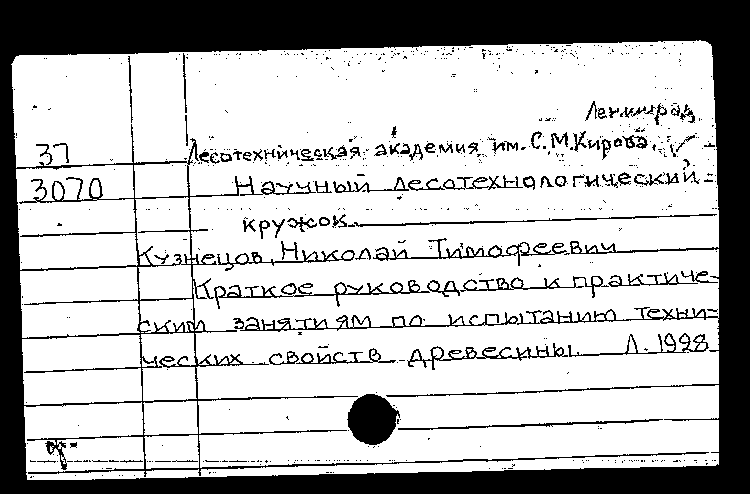 Ленинград
37 Лесотехническая академия им. С.М.Кирова.
3070 Научный лесотехнологический
кружок.
Кузнецов, Николай Тимофеевич
Краткое руководство к практиче-
ским занятиям по испытанию техни-
ческих свойств древесины. Л. 1928